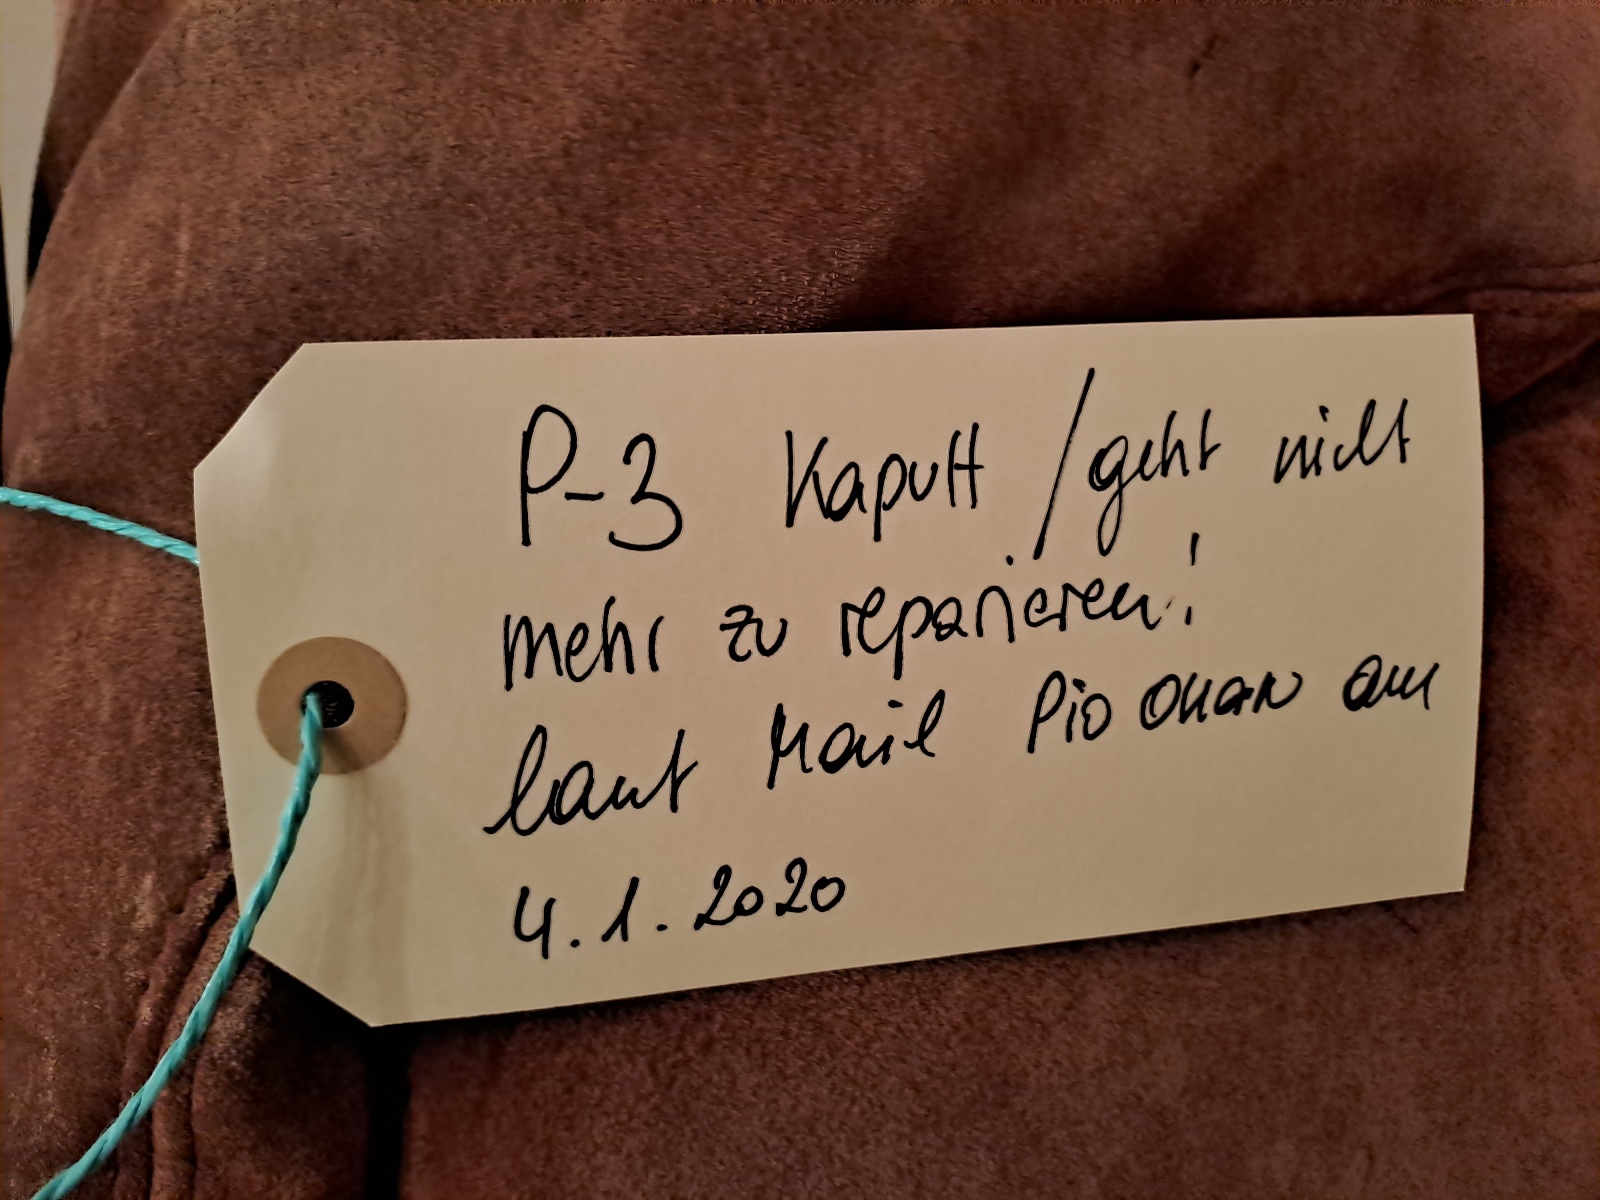 P-3 Kaputt / geht nicht
mehr zu reparieren!
laut Mail Pio am
4.1.2020